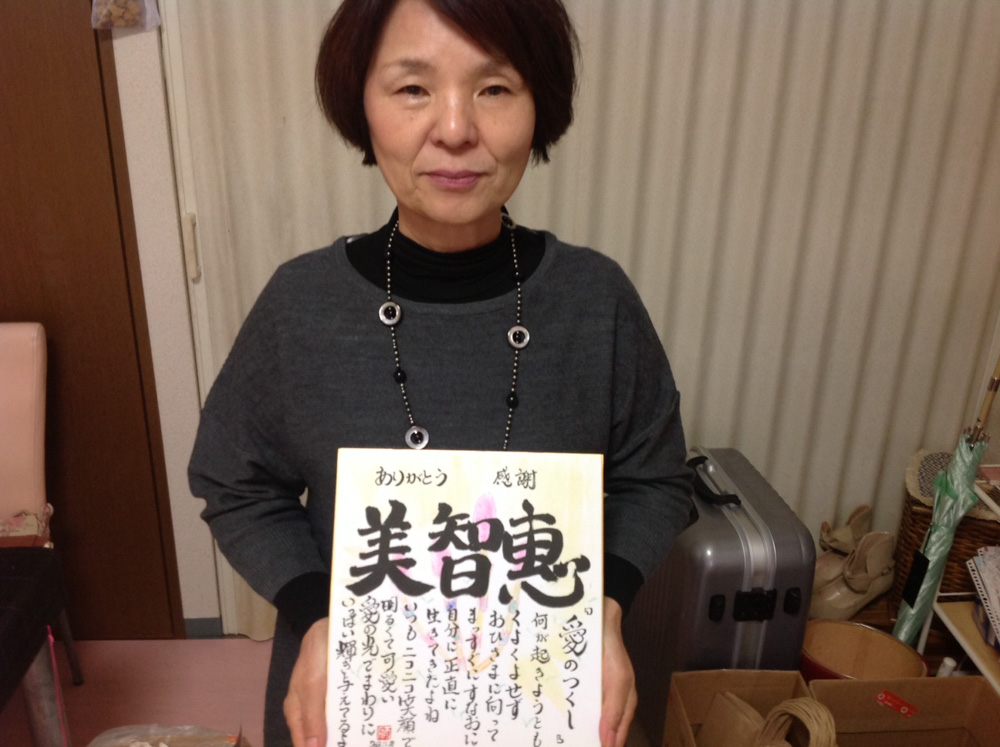 ありがとう 感謝
美智恵
『愛のつくし
何が起きようとも
くよくよせず
おひさまに向って
まっすぐにすなおに
自分に正直に
生きてきたよね
いつもニコニコ笑顔で
明るくて可愛い
愛の光でまわりに
いっぱい輝き与えてるよ